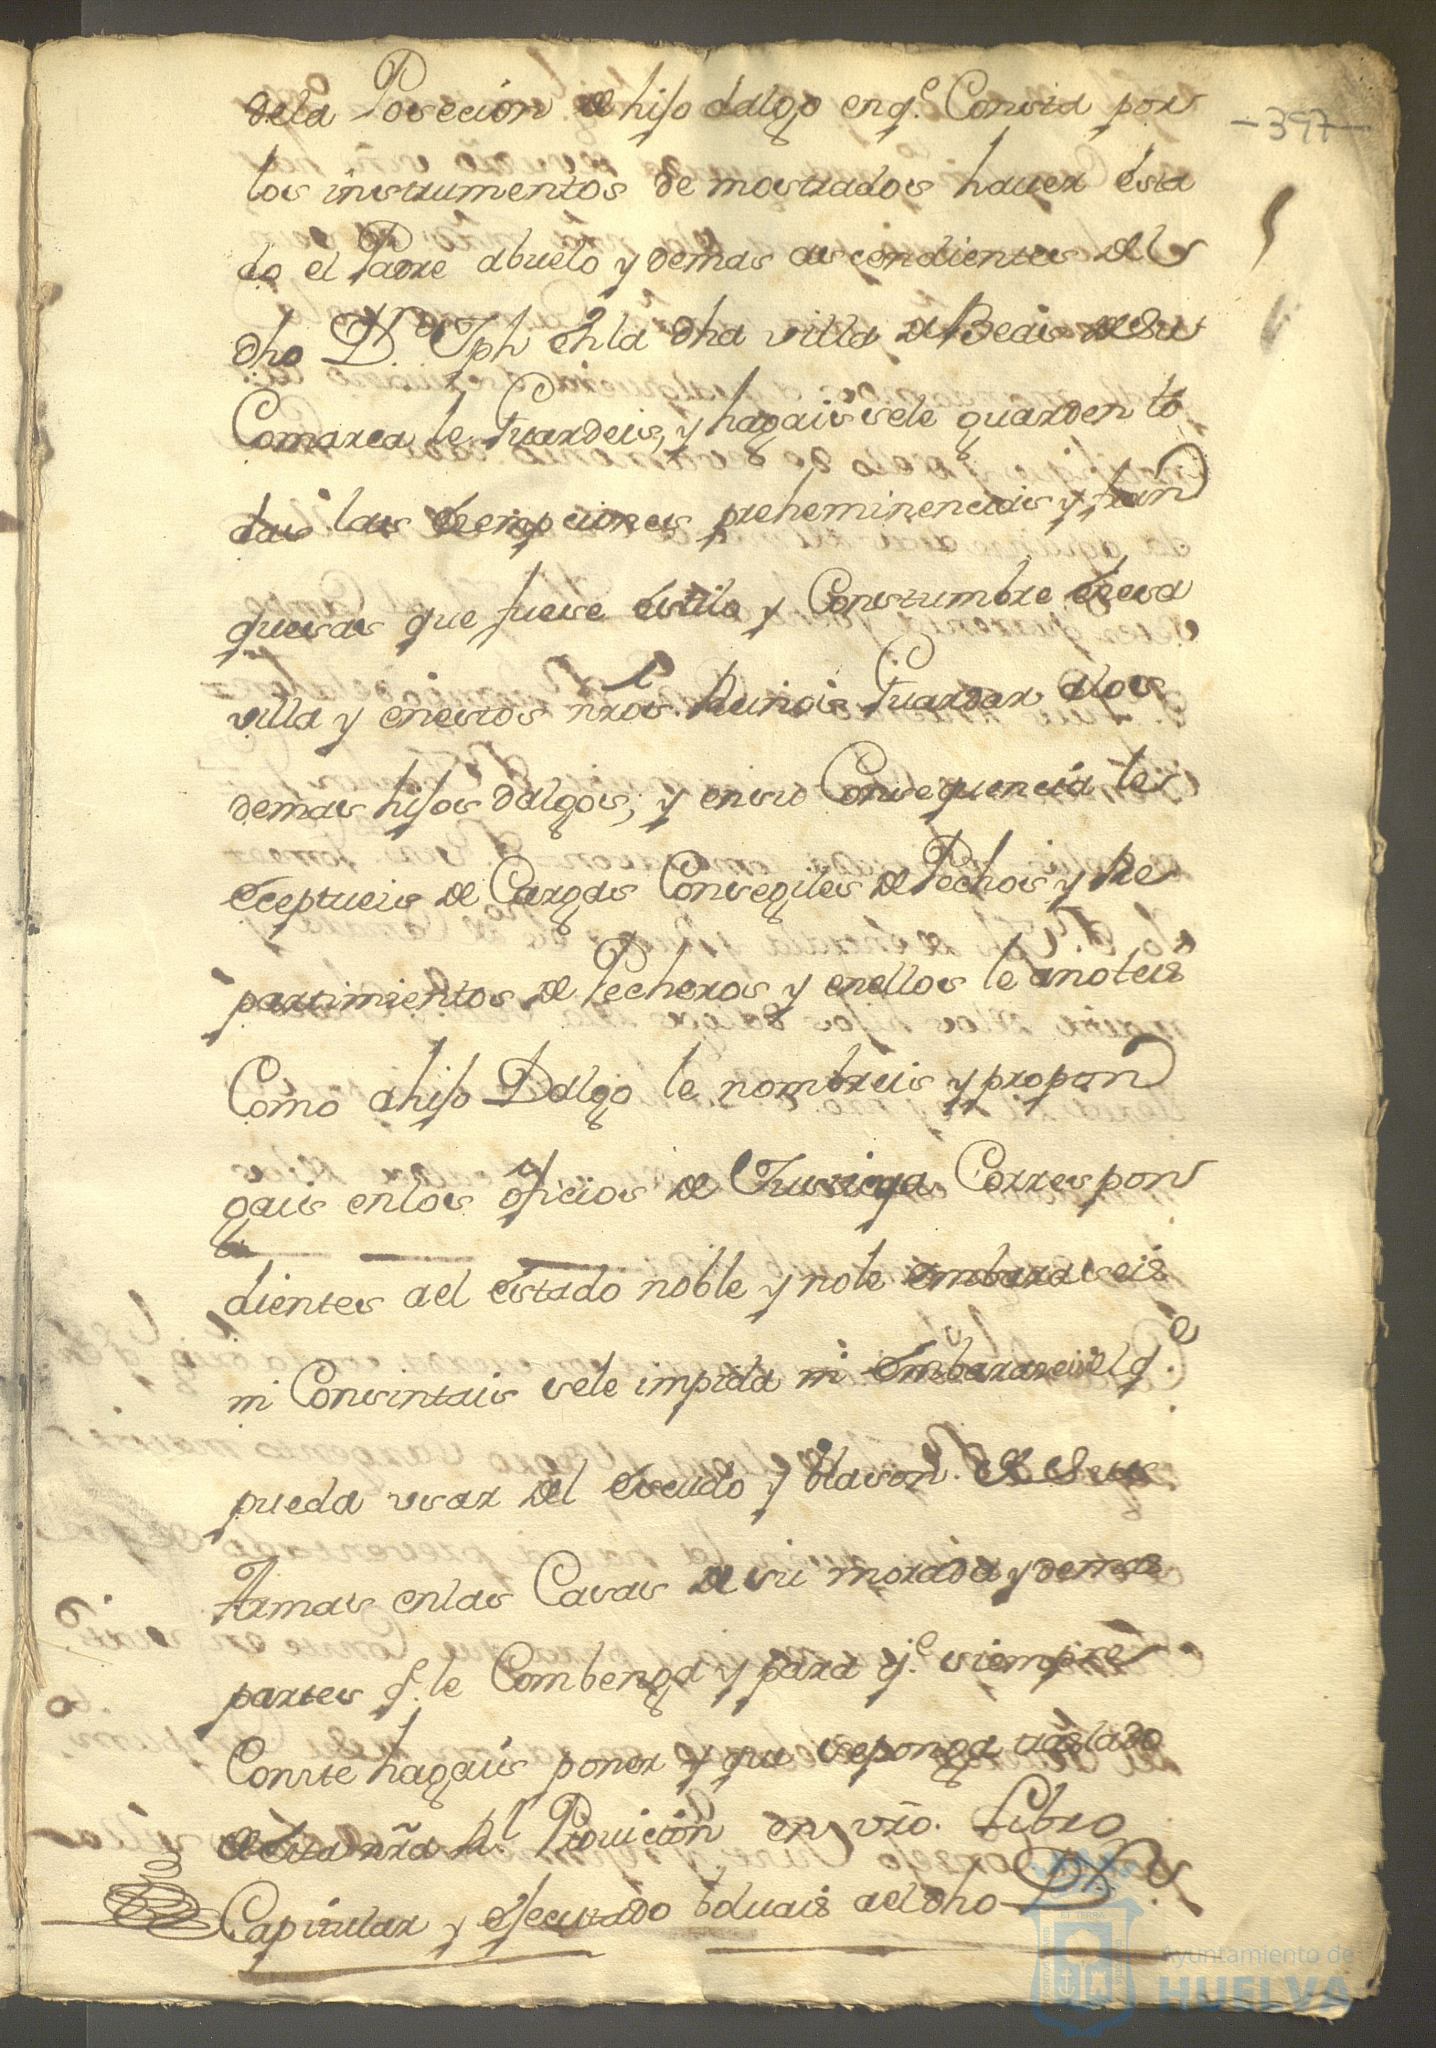 -397-
dela Poseción de hijo dalgo enq.e Consta por
los instrumentos demostrados hauer esta
do el Padre abuelo y demas ascendientes del
dho D.n Jph enla dha villa de Beas de su
Comarca le Guardeis, y hagais sele guarden to
das las esempciones preheminencias y fran
quesas que fuese estilo y Constumbre de esa
villa y enestos nros Reinos Guardar alos
demas hijos dalgos; y ensu Consequencia le
eceptueis de Cargas Consegiles de Pechos y Re
partimientos de Pecheros y enellos le anoteis
Como ahijo Dalgo le nombreis y propon
gais enlos oficios de Justicia Correspon
dientes ael estado noble y nole embaraseis
ni Consintais sele impida ni embarase el q.e
pueda usar del escudo y blason de sus
Armas enlas Casas de su morada y demas
partes q.e le Combenga y para q.e siempre
Conste hagais poner y que seponga traslado
de esta nra R.l Prouición en vro. Libro
Capitular y ejecutado bduais ael dho D.n
Ayuntamiento de
HUELVA